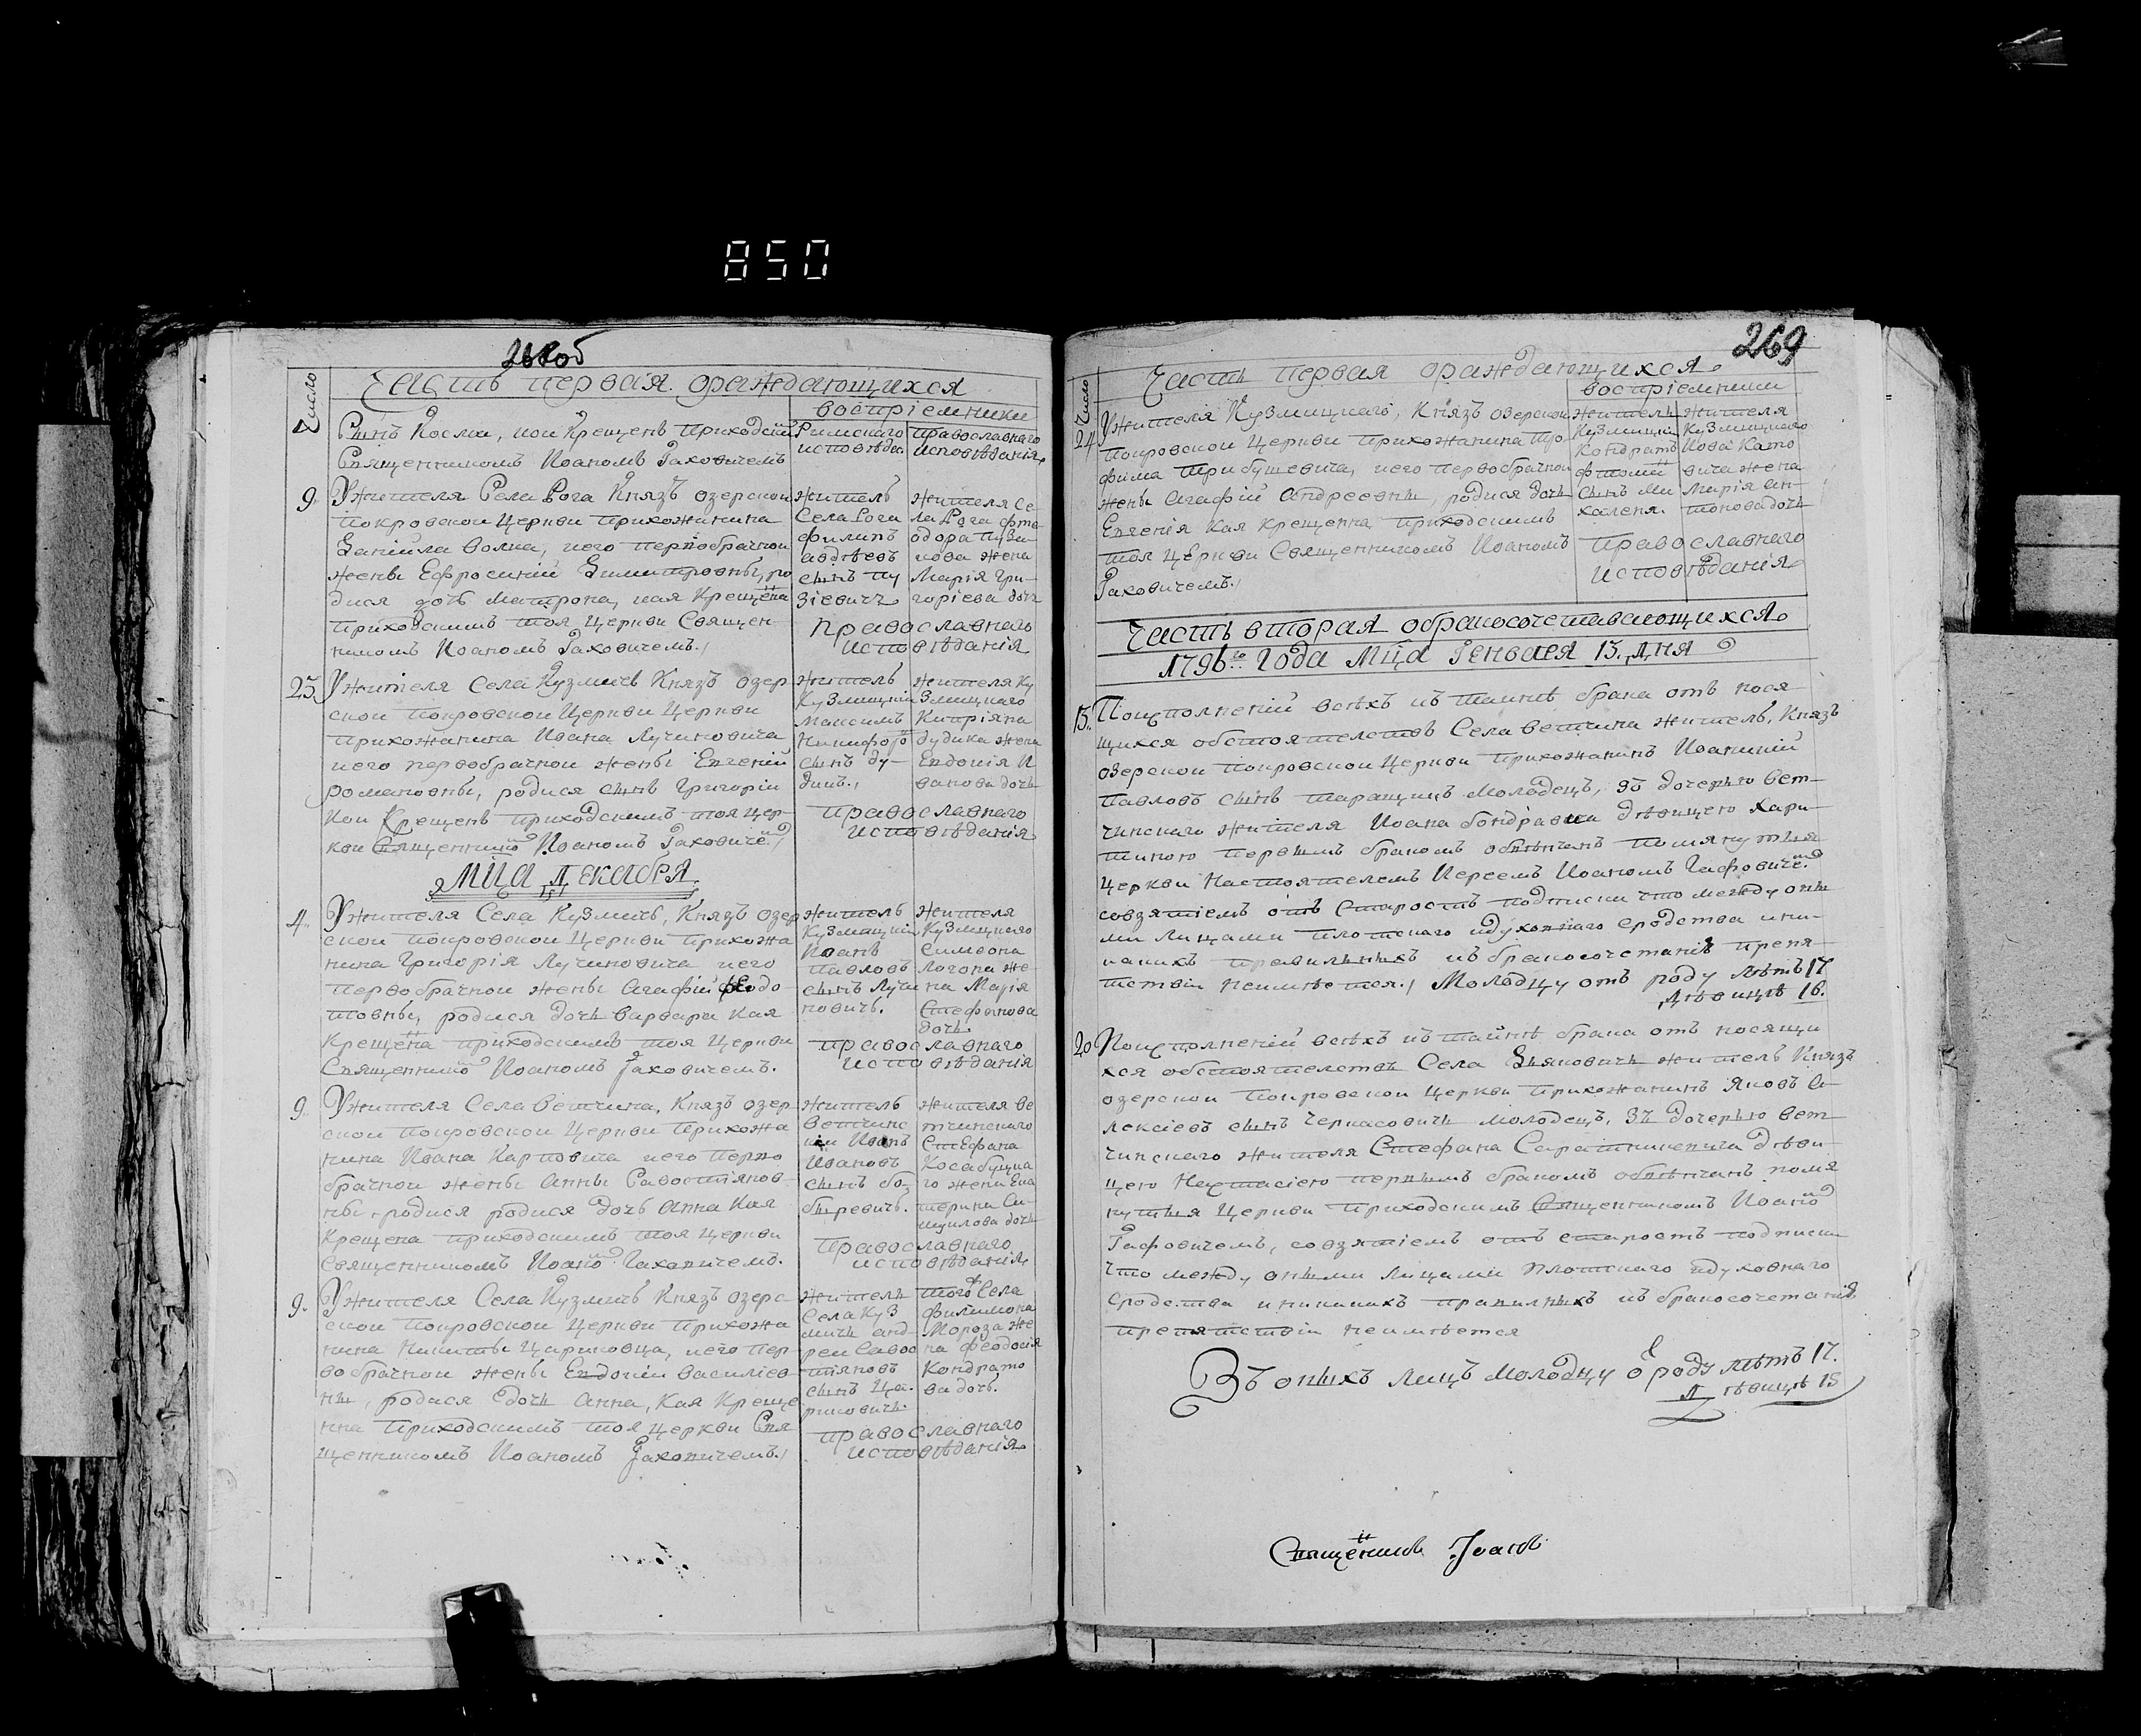 850
268об
Часть первая ораждающихся
Число
воспріемники
Сынъ Косма, кои Крещенъ приходскимъ
Священникомъ Иоаномъ Гаховичемъ
Римскаго
исповѣда
православнаго
исповѣданія
9. Ужителя Села Рога Князь озерскои
покровскои Церкви прихожанина
Даніила Волка, иего первобрачнои
жены Ефросиніи Димитровны, ро
дися доть Матрона, кая Крещена
приходскимъ тоя Церкви Священ
никомъ Иоаномъ Гаховичемъ.
житель
Села Рога
филипъ
авдѣевъ
сынъ пу
зіевичъ
жителя Се
ла Рога фео
одора пузи
кова жена
Марія гри
горіева дочь
православнаго
исповѣданія
25. Ужителя Села Кузмичъ Князь озер
скои покровскои Церкви Церкви
прихожанина Ивана Лучиновича
иего первобрачнои жены Евгеніи
романовны, родися сынъ Григоріи
кои Крещенъ приходскимъ тоя цер
кви Священникомъ Иоаномъ Гаховичем
житель
Кузмицкіи
Максимъ
Никифоро
сынъ ду-
дикъ.
жителя Ку
змицкаго
Кипріяна
дудика жена
Евдокія И
ванова дочь
православнаго
исповѣданія
Мца Декабря
4. Ужителя Села Кузмичъ, Князь озер
скои покровскои Церкви прихожа
нина Григорія Лучиновича иего
первобрачнои жены Агафіи Федо
товны, родися дочь варвара кая
Крещена приходскимъ тоя Церкви
Священнико Иоаномъ Гаховичемъ.
житель
Кузмицкіи
Иванъ
павловъ
сынъ Лучи
новичъ.
жителя
Кузмицкаго
Симеона
Логона же
на Марія
Стефанова
дочь.
православнаго
исповѣданія
9. Ужителя Села Ветчина, Князь озер
скои покровскои Церкви прихожа
нина Ивана Карповича иего перво
брачнои жены Анны Савостіянов
ны, родися родися дочь Анна кая
Крещена приходскимъ тоя Церкви
священникомъ Иоано Гаховичемъ.
житель
ветчинс
кіи Иванъ
Ивановъ
сынъ бо
быревичъ.
жителя ве
тчинскаго
Стефана
Косабуцка
го жена Ека
терина Са
муилова дочь
православнаго
исповѣданія
9. Ужителя Села Кузмичъ Князь озерс
скои покровскои Церкви прихожа
нина Никиты Цариковца, иего пер
вобрачнои жены Евдокіи василіев
ны, родися дочь Анна, кая Креще
нна приходскимъ тоя церкви Свя
щенникомъ Иоаномъ Гаховичемъ.
житель
Села Куз
мичъ анд
реи Савос
тіяновъ
сынъ Ца
риковичъ.
того Села
филимона
Мороза же
на феодосія
Кондрато
ва дочь.
православнаго
исповѣданія
269
Часть первая ораждающихся
Число
воспріемники
24 Ужителя Кузмицкаго, Князь озерскои
покровскои Церкви прихожанина тро
фима трибушевича, иего первобрачнои
жены Агафіи Андреевны, родися дочь
Евгенія кая крещенна приходскимъ
тоя церкви Священникомъ Иоаномъ
Гаховичемъ.
житель
Кузмицкіи
Кондратъ
сынъ Ми
халеня.
жителя
Кузмицкаго
Иова Като
вича жена
Марія Ан
тонова дочь
православнаго
исповѣданія
Часть вторая обракосочетавающихся
1796го Года Мца Генваря 15. дня
15. Поисполненіи всѣхъ къ таинѣ брака отъ нося
щихся обстоятелствъ Села ветчина житель, Князь
озерскои покровскои Церкви прихожанинъ Иоанникіи
павловъ сынъ таращицъ молодецъ, зъ дочерью вет
чинскаго жителя Иоана бондравца дѣвицею хари
тиною первымъ бракомъ обвѣнчанъ помянутыя
церкви Настоятелемъ Иереемъ Иоаномъ Гафовичем
совзятіемъ отъ Старостъ подписки что между оны
ми лицами плотскаго идуховнаго сродства ини
какихъ правильныхъ къ бракосочетанію препя
тствіи неимѣется. Молодцу отъ роду лѣтъ 17
Дѣвицѣ 16.
20 Поисполненіи всѣхъ къ таинѣ брака отъ носящи
хся обстоятелствъ Села Дьяковичъ житель Князь
озерскои покровскои церкви прихожанинъ Яковъ А
лексіевъ сынъ Черкасовичъ молодецъ, зъ дочерью вет
чинскаго жителя Стефана Саратникевича дѣви
цею Настасіею первымъ бракомъ обвѣнчанъ помя
нутыя Церкви приходскимъ Священникомъ Иоано
Гафовичемъ, совзятіемъ отъ старостъ подписки
что между оными лицами плотскаго идуховнаго
сродства иникакихъ правилныхъ къ бракосочетанію
препятствіи неимѣется
Зъ оныхъ лицъ молодцу о роду лѣтъ 17.
Дѣвицѣ 15
Священникъ Іоанъ